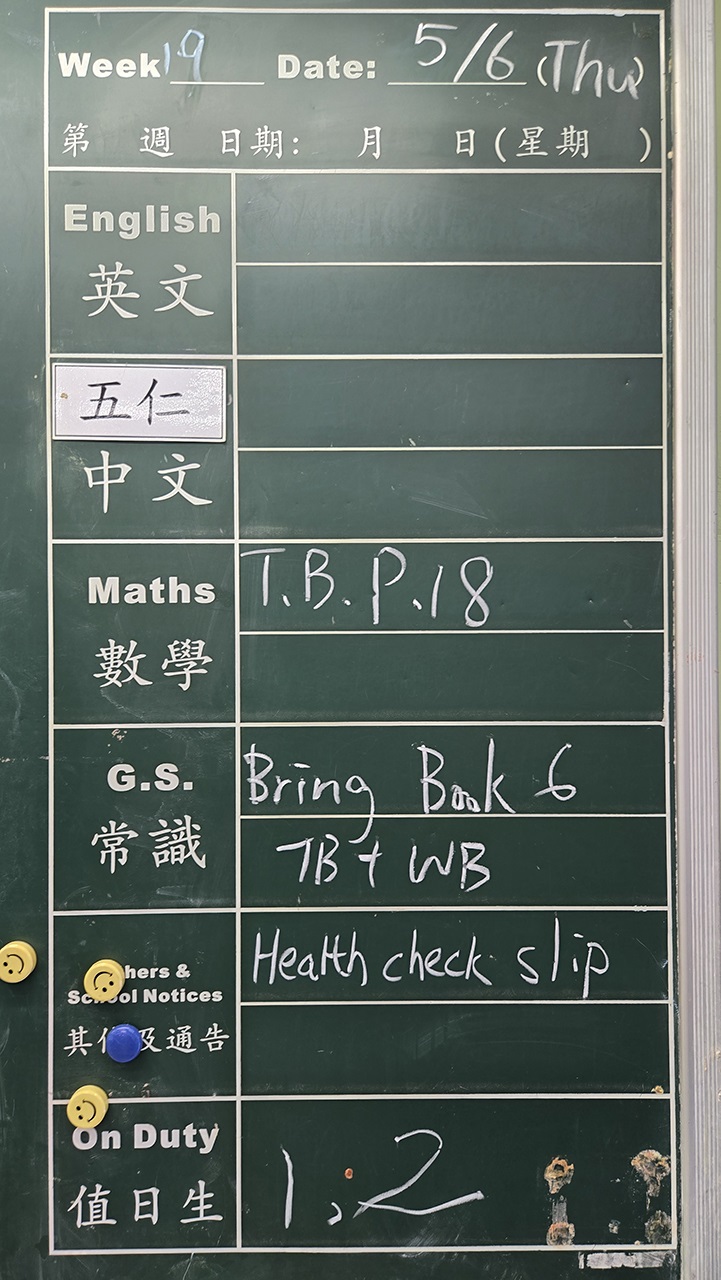 Week 19 Date: 5/6 (Thu)
第 週 日期: 月 日(星期 )
English
英文
五仁
中文
Maths T.B.P.18
數學
G.S. Bring Book 6
常識 TB + WB
Health check slip
School Notices
其他及通告
On Duty 1,2
值日生